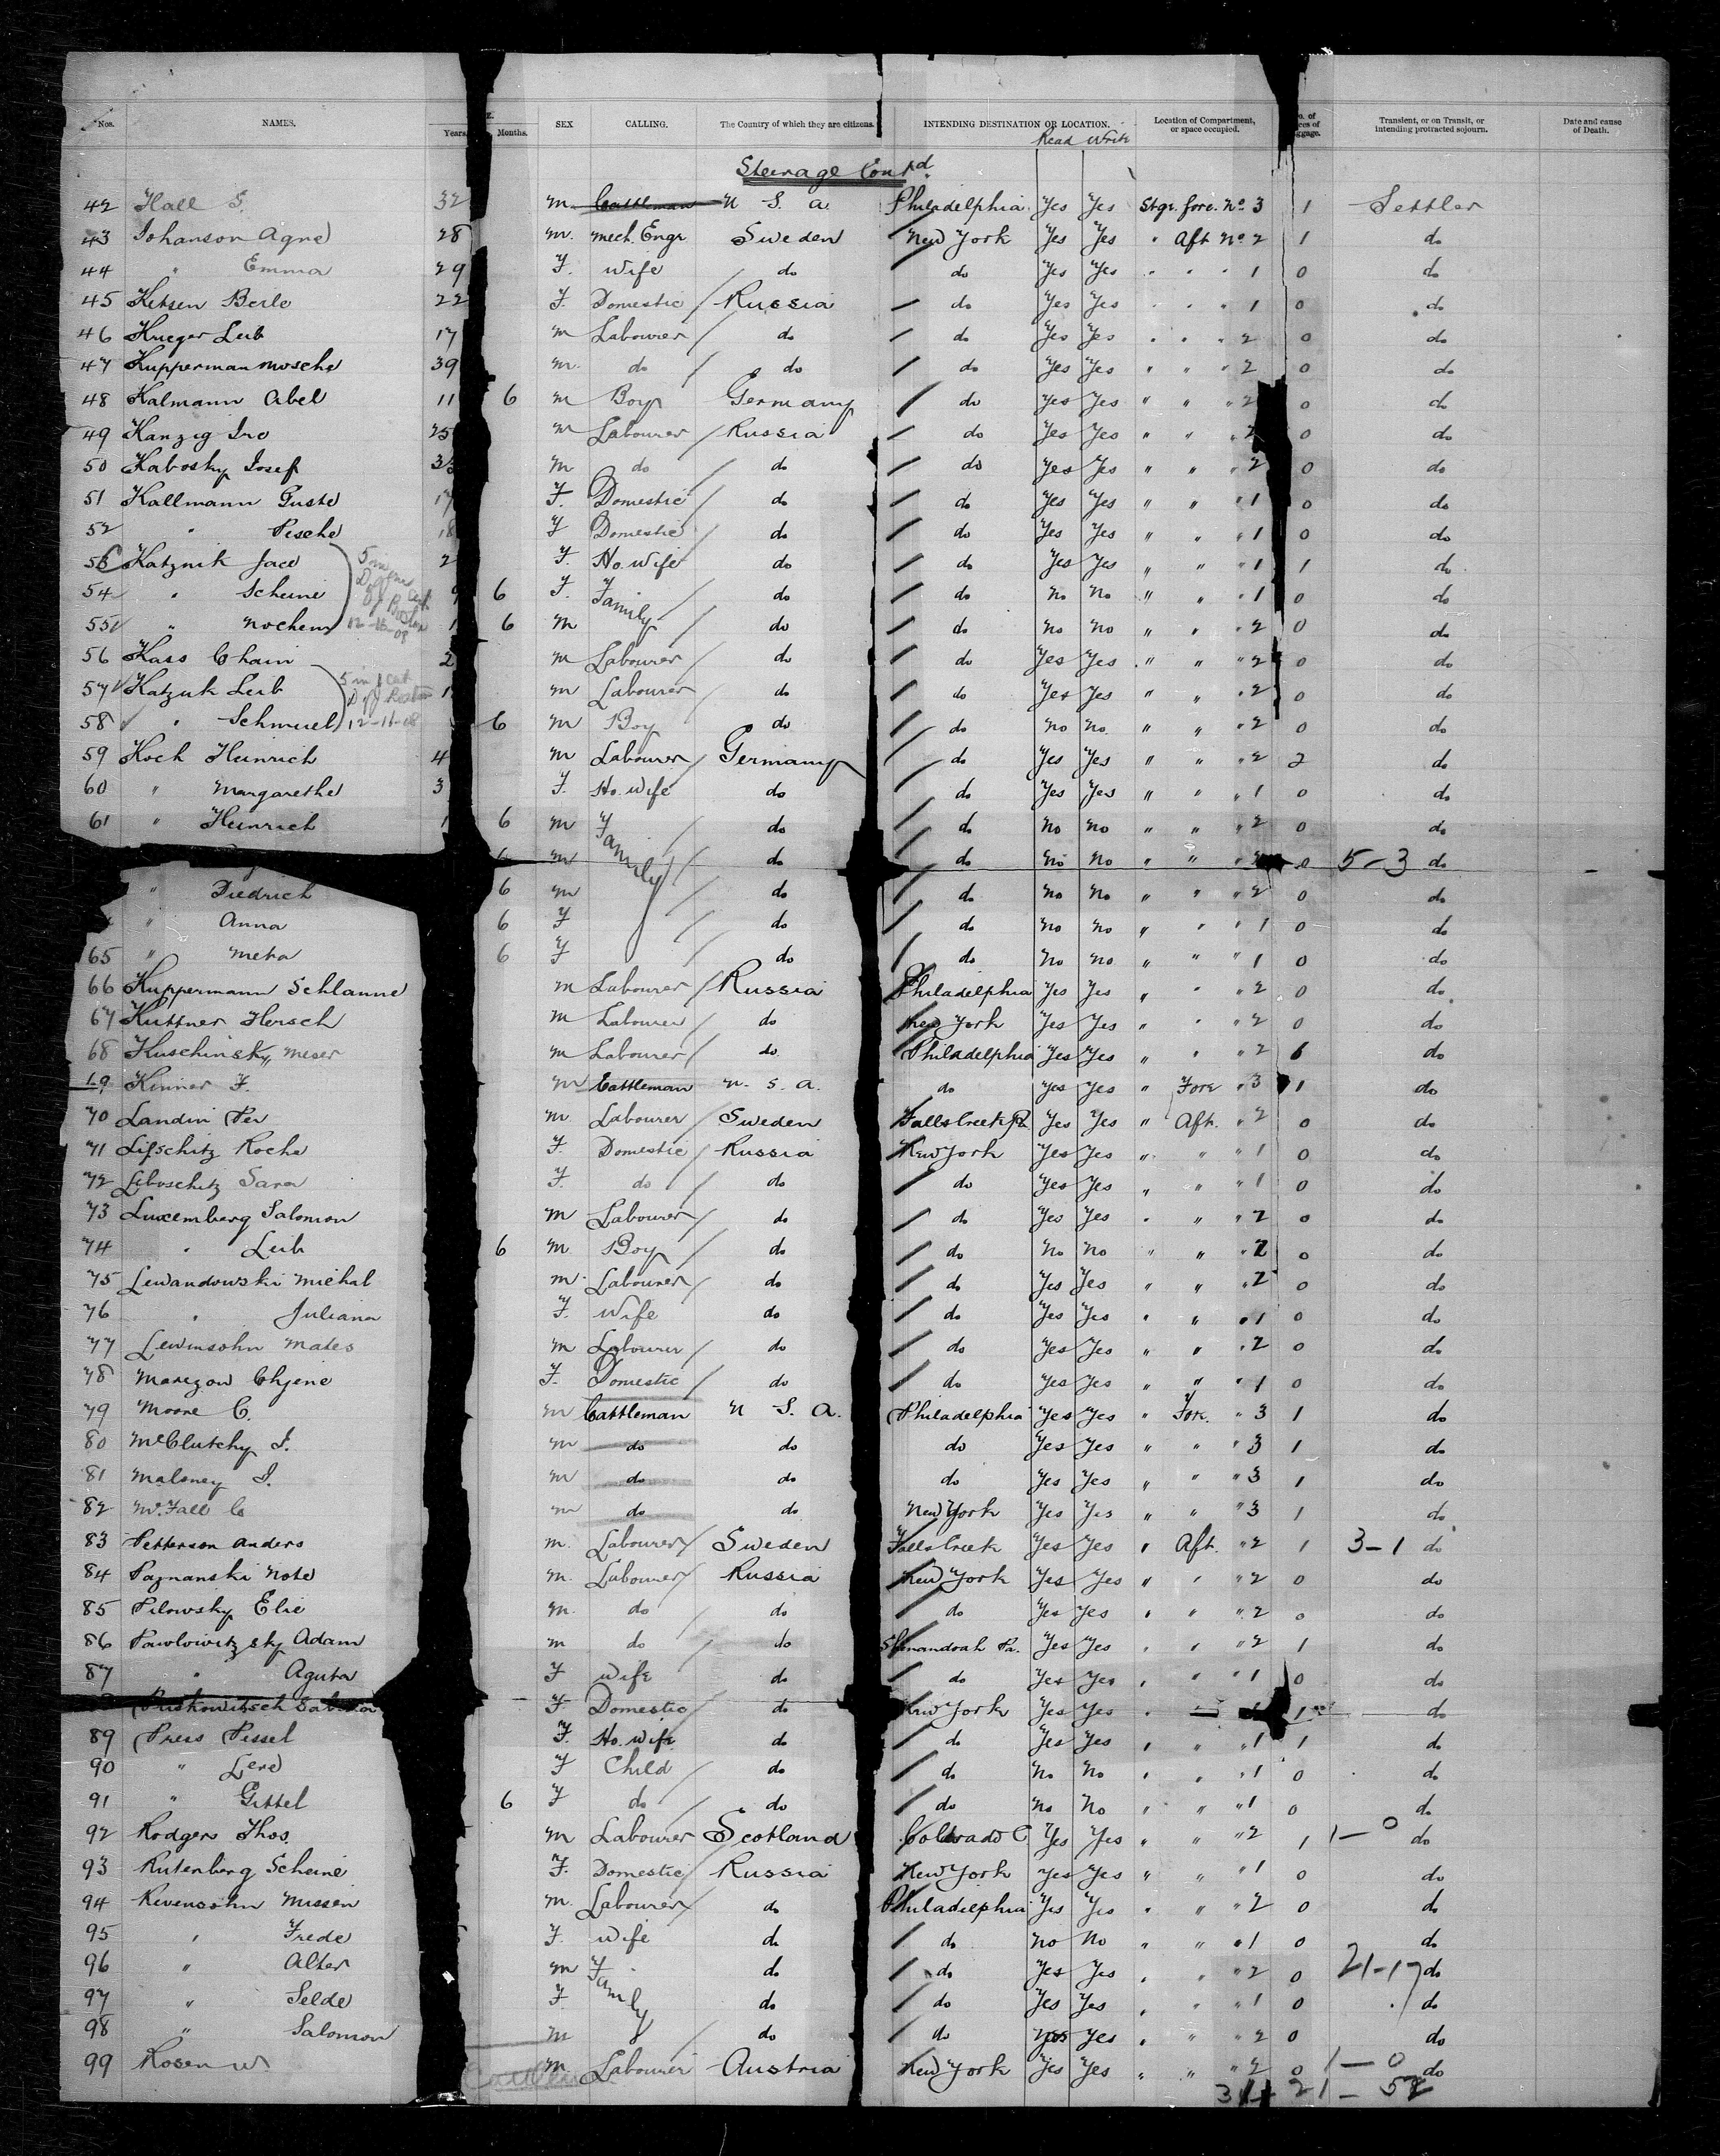 Nos. NAMES. Years. Months. SEX CALLING. The Country of which they are citizens. INTENDING DESTINATION OR LOCATION. Location of Compartment, or space occupied. Transient, or on Transit, or intending protracted sojourn. Date and cause of Death.
Read Write
Steerage Cont'd
42 Hall S. 32 m Cattleman U S. a. Philadelphia Yes Yes Stge. fore. No. 3 1 Settler
43 Johanson Agne 28 m. mech. Engr Sweden New York Yes Yes " Aft No. 2 1 do
44 " Emma 29 F. Wife do do Yes Yes " " " 1 0 do
45 Ketsen Berle 22 F. Domestic Russia do Yes Yes " " " 1 0 do
46 Krueger Leib 17 m Labourer do do Yes Yes " " " 2 0 do
47 Kupperman Mosche 39 m. do do do Yes Yes " " " 2 0 do
48 Kalmann Abel 11 6 m Boy Germany do Yes Yes " " " 2 0 do
49 Kanzig Iro 25 m Labourer Russia do Yes Yes " " " 2 0 do
50 Kabosky Josef m do do do Yes Yes " " " 2 0 do
51 Kallmann Guste 17 F. Domestic do do Yes Yes " " " 1 0 do
52 " Pesche 18 F Domestic do do Yes Yes " " " 1 0 do
53 Katznik Jace 2 F. Ho. Wife do do Yes Yes " " " 1 1 do
54 " Scheine 9 6 F. Family do do No No " " " 1 0 do
55 " Nochem 1 6 m do do No No " " " 2 0 do
56 Kass Chain 2 m Labourer do do Yes Yes " " " 2 0 do
57 Katzuk Leib 1 m Labourer do do Yes Yes " " " 2 0 do
58 " Schmuel 12-11-08 6 m Boy do do No No " " " 2 0 do
59 Koch Heinrich 4 m Labourer Germany do Yes Yes " " " 2 2 do
60 " Margarethe 3 F. Ho. Wife do do Yes Yes " " " 1 0 do
61 " Heinrich 1 6 m Family do do No No " " " 2 0 do
m do do No No " " " 0 5-3 do
" Diedrich 6 m do do No No " " " 2 0 do
" Anna 6 F do do No No " " " 1 0 do
65 " Meta 6 F do do No No " " " 1 0 do
66 Kuppermann Schlanne m Labourer Russia Philadelphia Yes Yes " " " 2 0 do
67 Kuttner Hersch m Labourer do New York Yes Yes " " " 2 0 do
68 Kuschinsky Meser m Labourer do Philadelphia Yes Yes " " " 2 6 do
69 Kinner F. m Cattleman U. S. a. do Yes Yes " Fore " 3 1 do
70 Landin Per m Labourer Sweden Falls Creek Pa Yes Yes " Aft. " 2 0 do
71 Lifschitz Roche F. Domestic Russia New York Yes Yes " " " 1 0 do
72 Leboschitz Sara F. do do do Yes Yes " " " 1 0 do
73 Luxemberg Salomon m Labourer do do Yes Yes " " " 2 0 do
74 " Leib 6 m Boy do do No No " " " 2 0 do
75 Lewandowski Michal m. Labourer do do Yes Yes " " " 2 0 do
76 " Juliana F. Wife do do Yes Yes " " " 1 0 do
77 Lewinsohn Mates m Labourer do do Yes Yes " " " 2 0 do
78 Marezow Chjene F. Domestic do do Yes Yes " " " 1 0 do
79 Moore C. m Cattleman U S. a. Philadelphia Yes Yes " Fore. " 3 1 do
80 McClutchy J. m do do do Yes Yes " " " 3 1 do
81 Maloney J. m do do do Yes Yes " " " 3 1 do
82 McFall C m do do New York Yes Yes " " " 3 1 do
83 Petterson Anders m. Labourer Sweden Falls Creek Yes Yes " Aft. " 2 1 3-1 do
84 Paznanski Note m. Labourer Russia New York Yes Yes " " " 2 0 do
85 Pilowsky Elie m. do do do Yes Yes " " " 2 0 do
86 Pawlowitzsky Adam m do do Shenandoah Pa. Yes Yes " " " 2 1 do
87 " Aguta F Wife do do Yes Yes " " " 1 0 do
Puskowitsch F Domestic do New York Yes Yes " 1 do
89 Press Pessel F. Ho. Wife do do Yes Yes " " " 1 1 do
90 " Lere F Child do do No No " " " 1 0 do
91 " Gittel 6 F do do do No No " " " 1 0 do
92 Rodger Thos. m Labourer Scotland Colorado C Yes Yes " " " 2 1 1-0 do
93 Rutenberg Scheine F. Domestic Russia New York Yes Yes " " " 1 0 do
94 Revensohn Missen m. Labourer do Philadelphia Yes Yes " " " 2 0 do
95 " Frede F. Wife do do No No " " " 1 0 do
96 " Alter m Family do do Yes Yes " " " 2 0 21-17 do
97 " Selde F. do do Yes Yes " " " 1 0 do
98 " Salomon m do do Yes Yes " " " 2 0 do
99 Rosen W. m Labourer Austria New York Yes Yes " " " 2 0 1-0 do
31 21 - 52